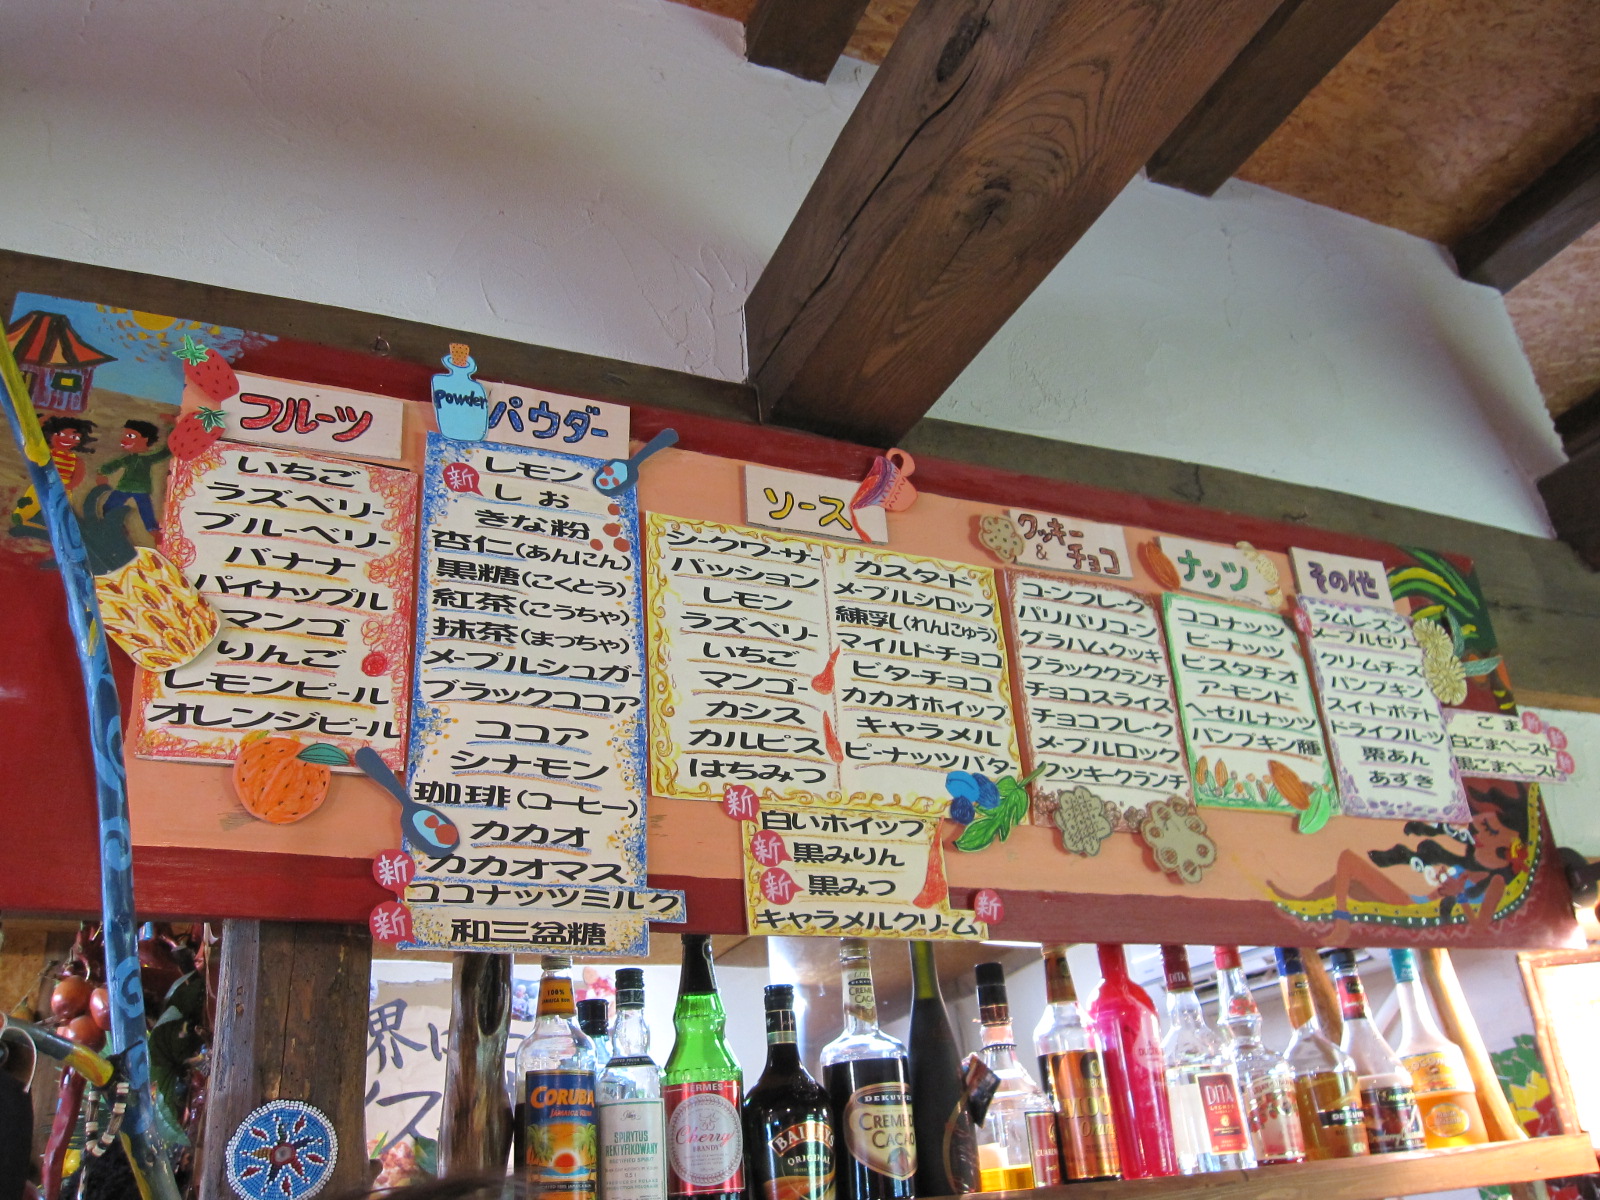 フルーツ
いちご
ラズベリー
ブルーベリー
バナナ
パイナップル
マンゴ
りんご
レモンピール
オレンジピール
powder
パウダー
レモン
新
しお
きな粉
杏仁(あんにん)
黒糖(こくとう)
紅茶(こうちゃ)
抹茶(まっちゃ)
メープルシュガー
ブラックココア
ココア
シナモン
珈琲(コーヒー)
カカオ
カカオマス
新
ココナッツミルク
新
和三盆糖
ソース
シークワーサー
パッション
レモン
ラズベリー
いちご
マンゴー
カシス
カルピス
はちみつ
カスタード
メープルシロップ
練乳(れんにゅう)
マイルドチョコ
ビターチョコ
カカオホイップ
キャラメル
ピーナッツバター
新
白いホイップ
新
黒みりん
新
黒みつ
キャラメルクリーム
新
クッキー
&
チョコ
コーンフレーク
パリパリコーン
グラハムクッキー
ブラッククランチ
チョコスライス
チョコフレーク
メープルロック
クッキークランチ
ナッツ
ココナッツ
ピーナッツ
ピスタチオ
アーモンド
ヘーゼルナッツ
パンプキン種
その他
ラムレーズン
メープルゼリー
クリームチーズ
パンプキン
スイートポテト
ドライフルーツ
栗あん
あずき
ごま
新
白ごまペースト
新
黒ごまペースト
新
界は
イス
100%
CORUBA
JAMAICA RUM
SPIRYTUS
REKTYFIKOWANY
HERMES
Cherry
BRANDY
BAILEYS
ORIGINAL
CREME
CACAO
DEKUYPER
CREME
CACAO
DITA
DITA
DEKUYPER